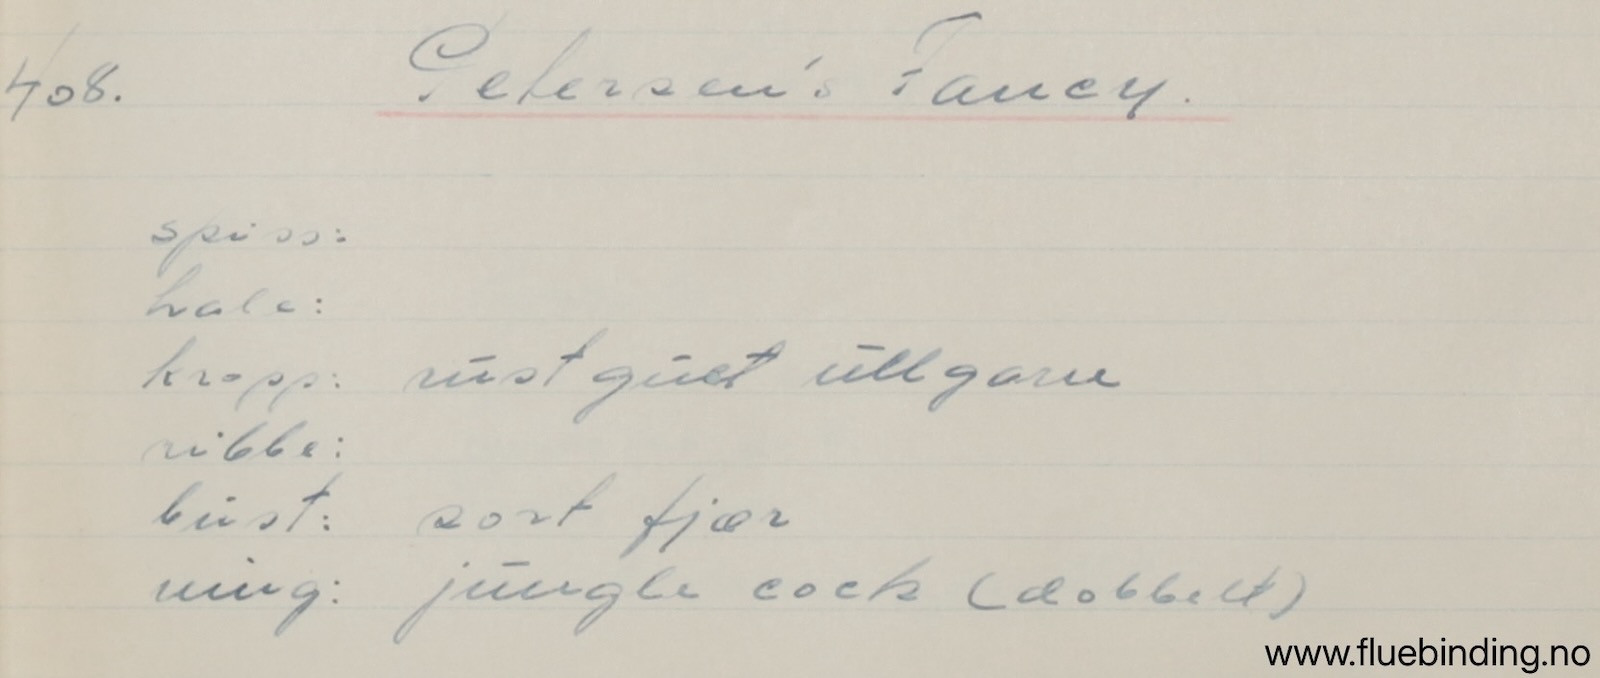 408. Petersen's Fancy.
spiss:
hale:
kropp: rustgult ullgarn
ribbe:
bust: sort fjær
ving: jungle cock (dobbelt)
www.fluebinding.no